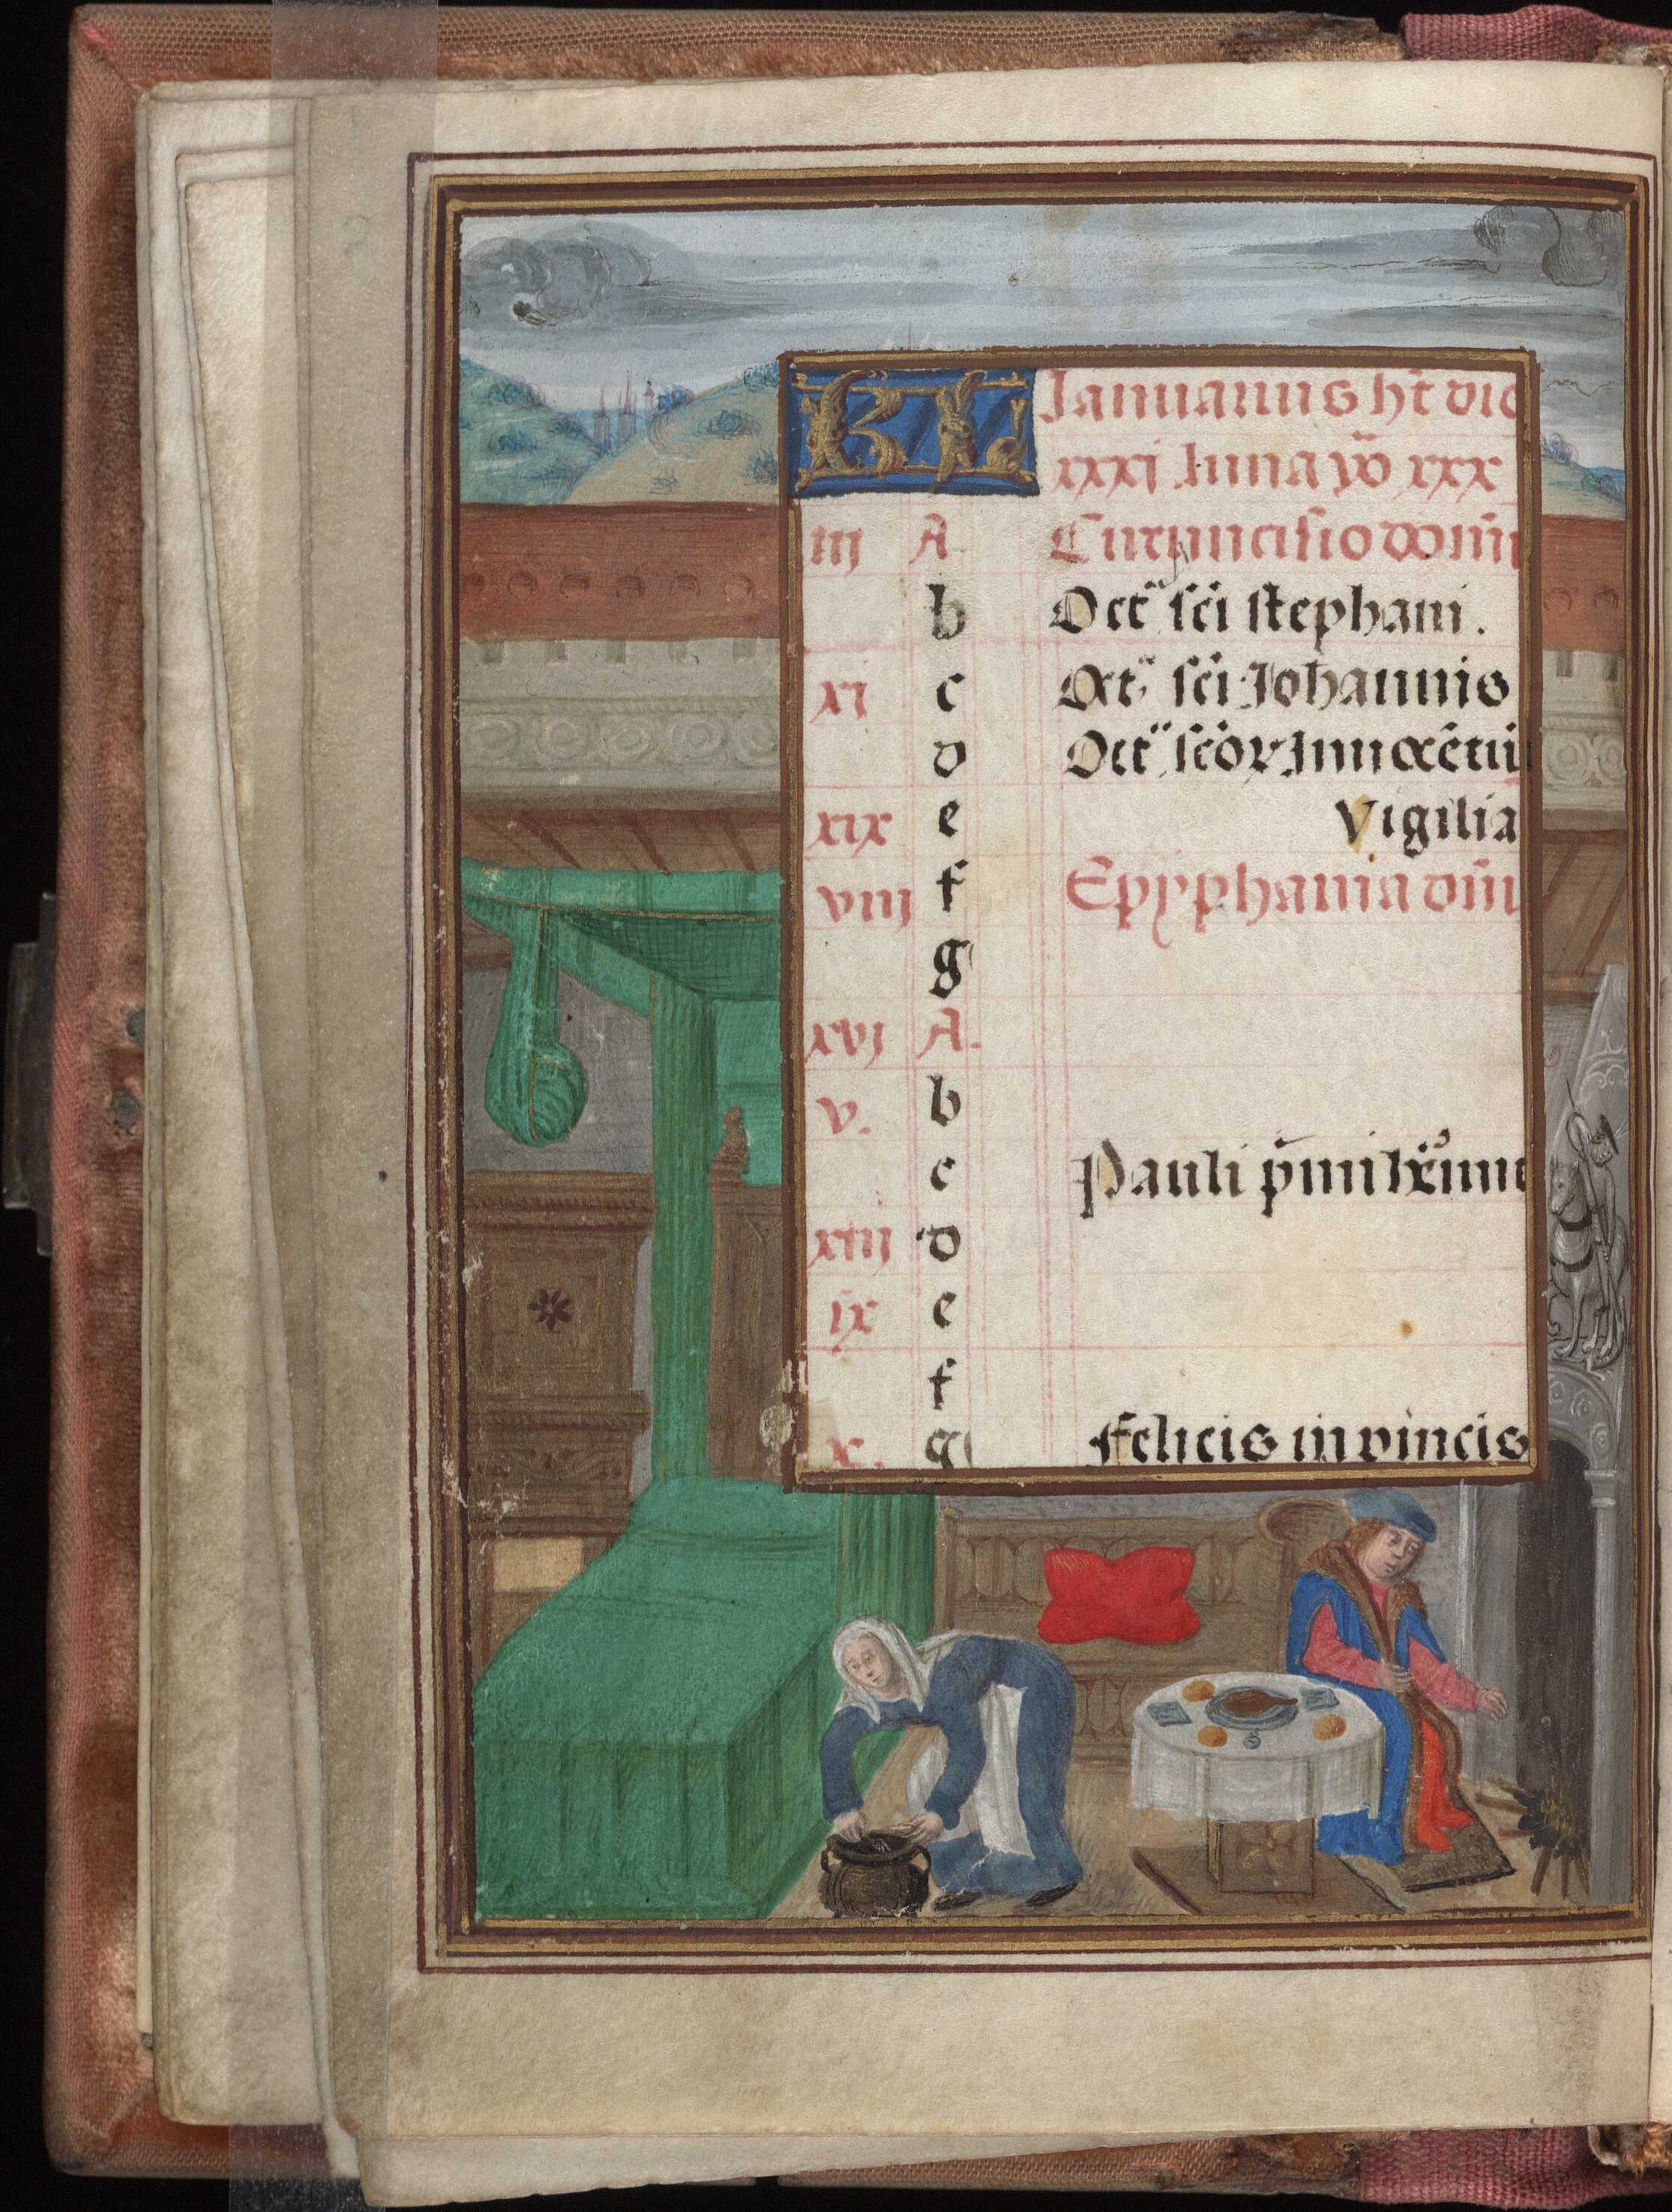 KL Januarius ht̄ die
xxxi luna vo xxx
iij A Circuncisio dom̄i
b Oct sci stephani.
xi c Oct sci Johannis
d Oct scōꝝ Innocētiū
xix e Vigilia
viij f Epyphania dn̄i
g
xvj A.
v. b
c Pauli p̄mi
xiij d
ix e
f
x. g Felicis in pincis